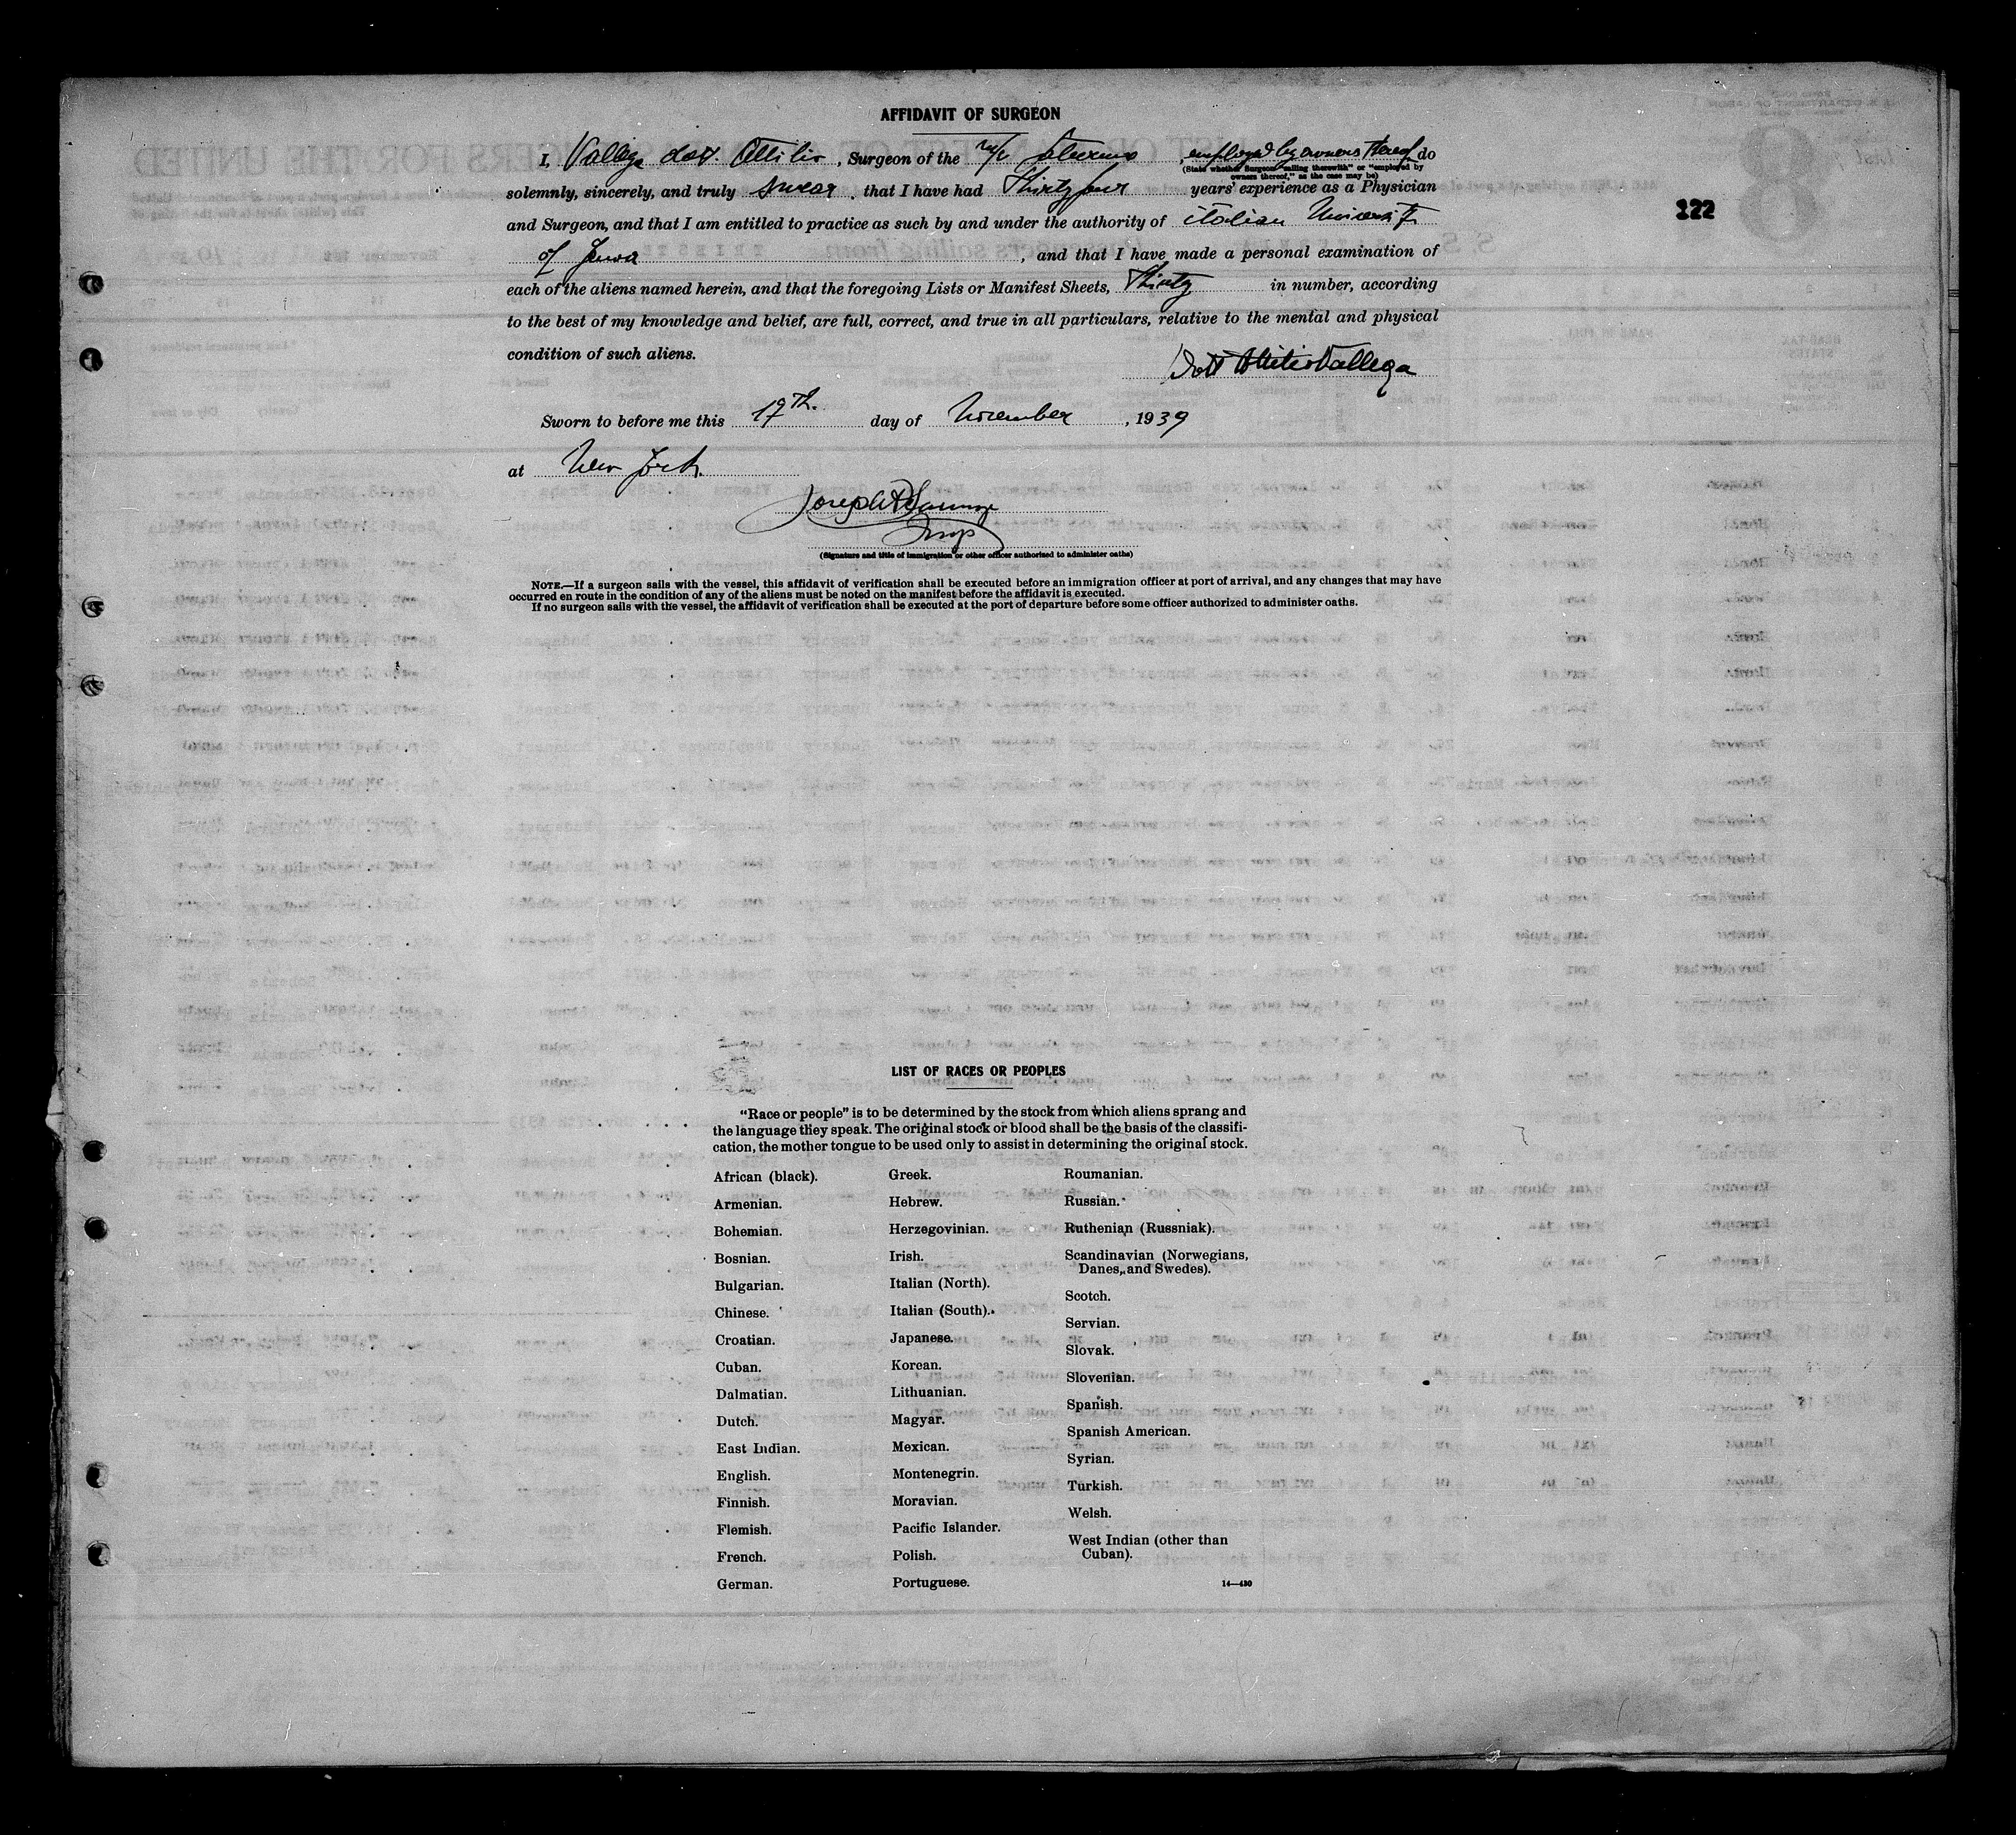 AFFIDAVIT OF SURGEON
I, Vallega dott. Attilio, Surgeon of the M/V Saturnia, employed by owners thereof, do
(State whether Surgeon "sailing therewith" or "employed by
owners thereof," as the case may be)
solemnly, sincerely, and truly swear, that I have had Thirty four years' experience as a Physician
and Surgeon, and that I am entitled to practice as such by and under the authority of italian University
of Genoa, and that I have made a personal examination of
122
each of the aliens named herein, and that the foregoing Lists or Manifest Sheets, Thirty in number, according
to the best of my knowledge and belief, are full, correct, and true in all particulars, relative to the mental and physical
condition of such aliens.
Dott Attilio Vallega
Sworn to before me this 17th. day of November, 1939
at New York.
Joseph
Insp
(Signature and title of immigration or other officer authorized to administer oaths)
NOTE.—If a surgeon sails with the vessel, this affidavit of verification shall be executed before an immigration officer at port of arrival, and any changes that may have
occurred en route in the condition of any of the aliens must be noted on the manifest before the affidavit is executed.
If no surgeon sails with the vessel, the affidavit of verification shall be executed at the port of departure before some officer authorized to administer oaths.
LIST OF RACES OR PEOPLES
"Race or people" is to be determined by the stock from which aliens sprang and
the language they speak. The original stock or blood shall be the basis of the classifi-
cation, the mother tongue to be used only to assist in determining the original stock.
African (black).
Armenian.
Bohemian.
Bosnian.
Bulgarian.
Chinese.
Croatian.
Cuban.
Dalmatian.
Dutch.
East Indian.
English.
Finnish.
Flemish.
French.
German.
Greek.
Hebrew.
Herzegovinian.
Irish.
Italian (North).
Italian (South).
Japanese.
Korean.
Lithuanian.
Magyar.
Mexican.
Montenegrin.
Moravian.
Pacific Islander.
Polish.
Portuguese.
Roumanian.
Russian.
Ruthenian (Russniak).
Scandinavian (Norwegians,
Danes, and Swedes).
Scotch.
Servian.
Slovak.
Slovenian.
Spanish.
Spanish American.
Syrian.
Turkish.
Welsh.
West Indian (other than
Cuban).
14—430